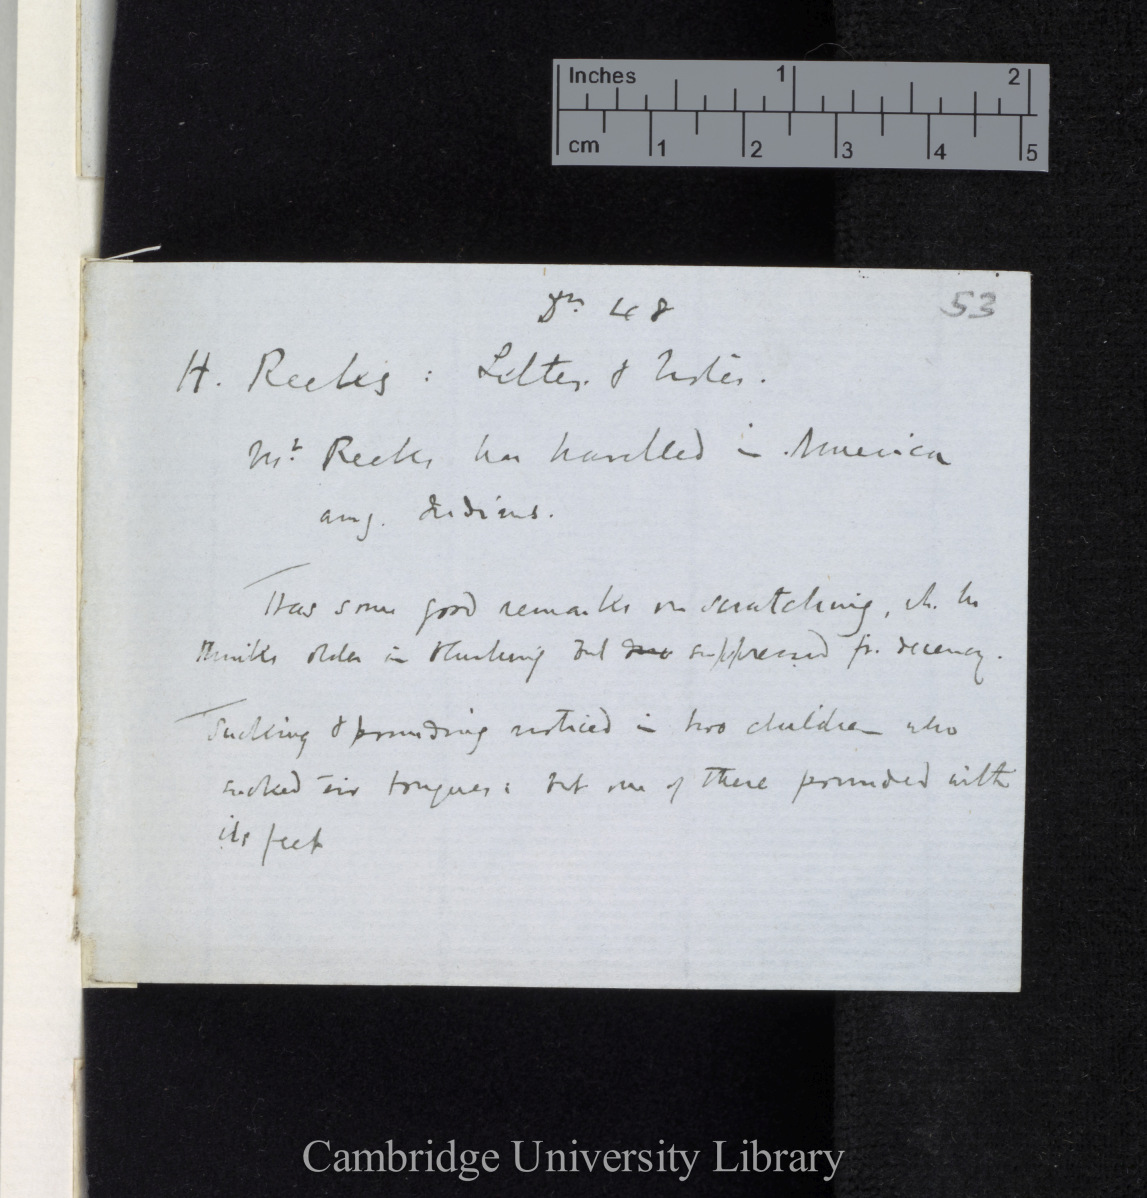 Inches 1 2
cm 1 2 3 4 5
53
48
H. Reeks: Letter & Notes.
Mr Reeks has travelled in America
amg. Indians.
Has some good remarks on scratching, wh. he
thinks older in blushing but suppressed fr. decency.
Sucking & pounding noticed in two children who
sucked their tongues: but one of these pounded with
its feet
Cambridge University Library